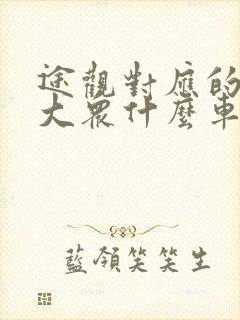 途觀對應的
大眾什麼車
藍領笑笑生